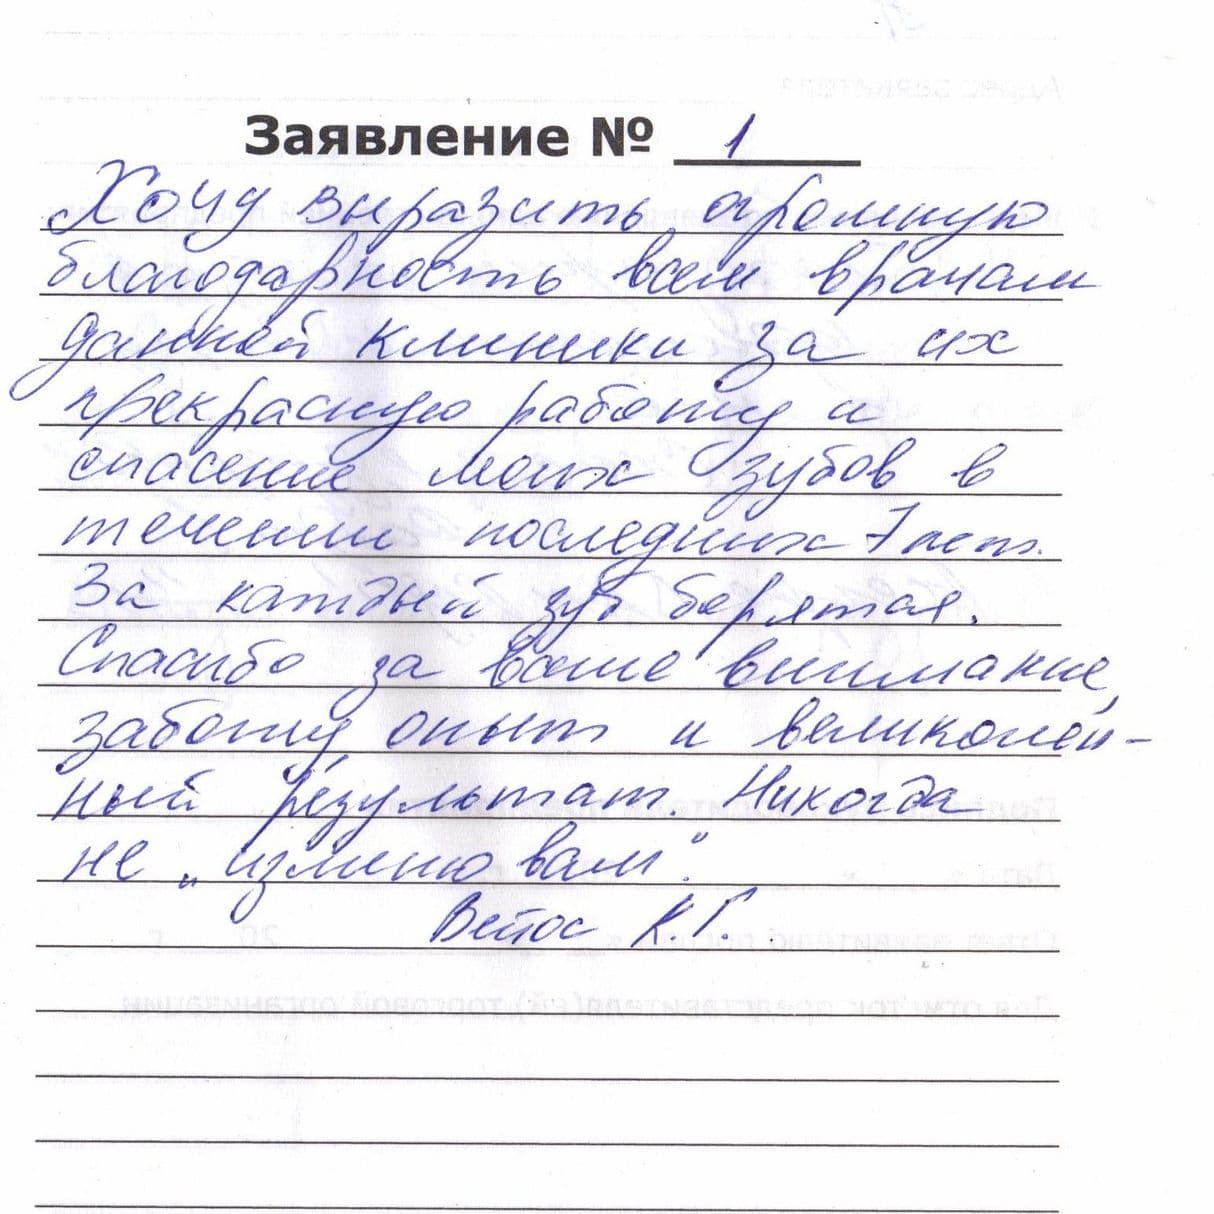 Заявление № 1
Хочу выразить огромную
благодарность всем врачам
данной клиники за их
прекрасную работу и
спасение моих зубов в
течении последних 7 лет.
За каждый зуб берятся.
Спасибо за ваше внимание,
заботу, опыт и великолеп-
ный результат. Никогда
не „изменю вам".
К.Г.